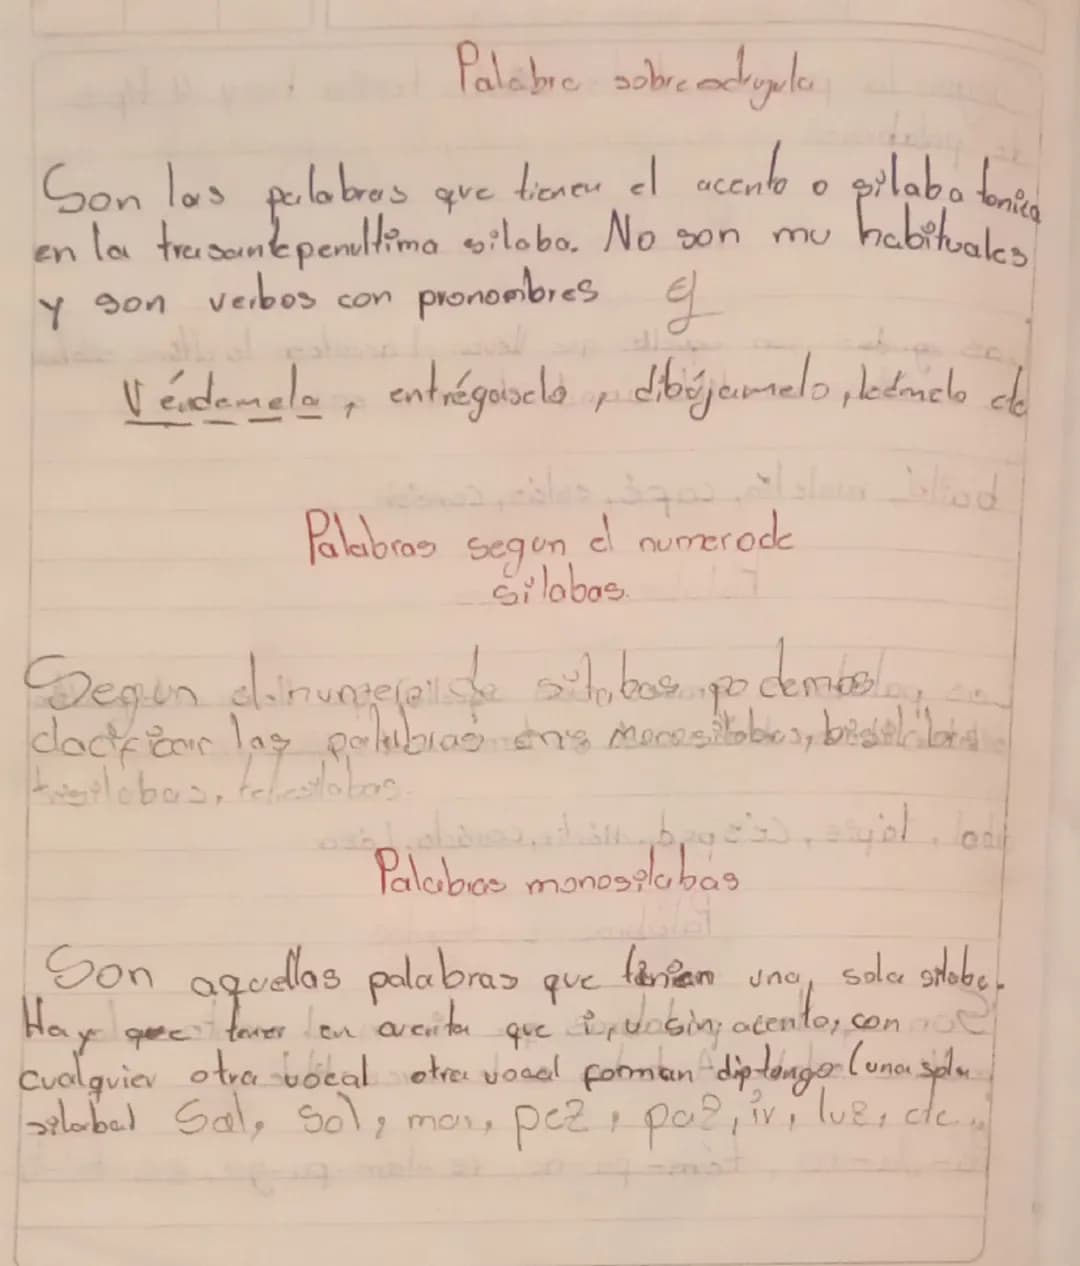 Palabra sobreesdrujula
Son las palabras que tienen el acento o silaba tonica
en la trasantepenultima silaba. No son mu habituales
y son verbos con pronombres Ej
Véndamela, entrégaselo, dibújamelo, léemelo etc
Palabras segun el numero de
silabas.
Segun el numero de silabas podemos
clacificar las palabras en: monosilabas, bisilabas
trisilabas, tetrasilabas.
Palabras monosilabas
Son aquellas palabras que tienen una sola silaba.
Hay que tener en cuenta que i, u sin acento, con
cualquier otra vocal otra vocal forman diptongo (una sola
silaba) Sal, Sol, mar, pez, paz, ir, luz, etc.